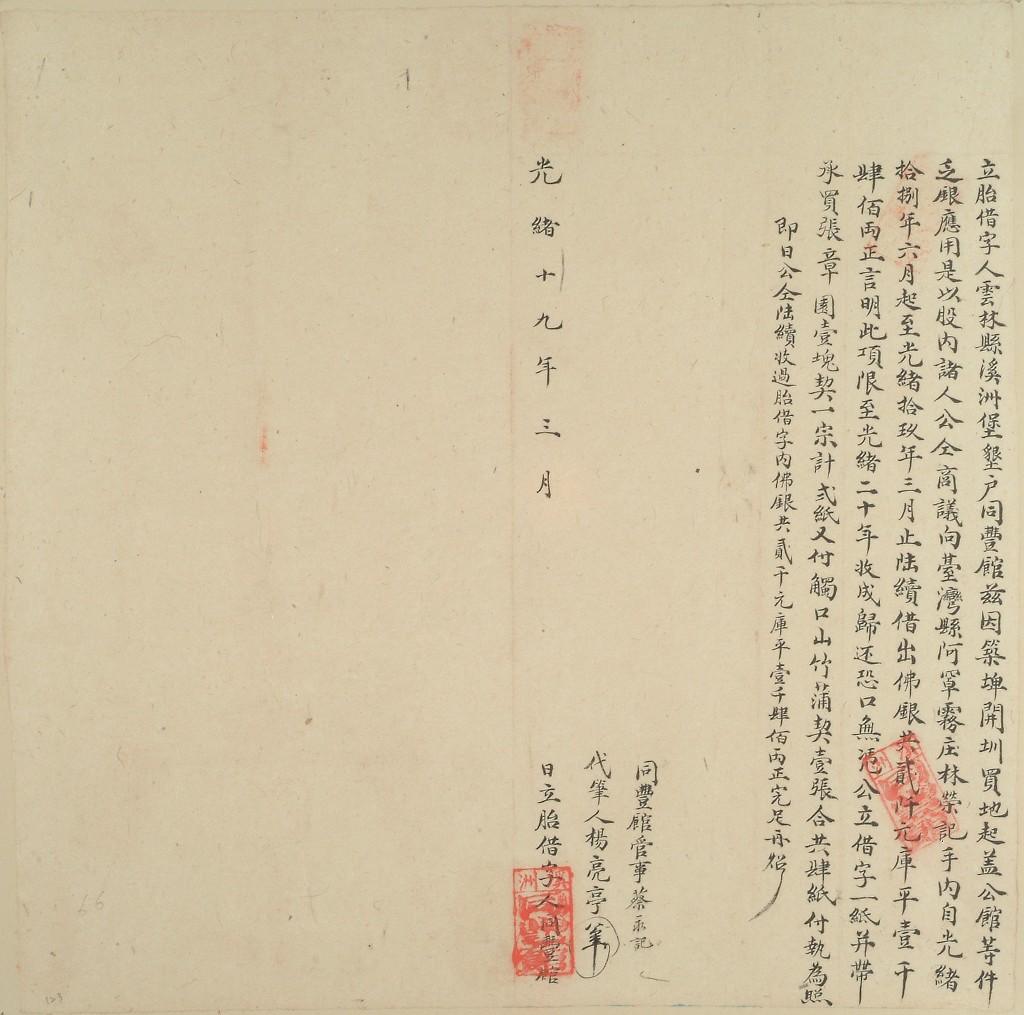 立胎借字人雲林縣溪洲堡墾户同豐館兹因築埤開圳買地起盖公館等件
乏銀應用是以股内諸人公仝商議向臺灣縣阿罩霧庄林榮記手内自光緒
拾捌年六月起至光緒拾玖年三月止陸續借出佛銀共貳仟元庫平壹千
肆佰両正言明此項限至光緒二十年收成歸还恐口無慿公立借字一紙并帶
承買張章園壹塊契一宗計弍紙又付觸口山竹蒲契壹張合共肆紙付執為照
即日公仝陸續收過胎借字内佛銀共貳千元庫平壹千肆佰両正完足再炤
同豐館管事蔡承記
代筆人楊亮亭
光緒十九年三月
日立胎借字人同豐館